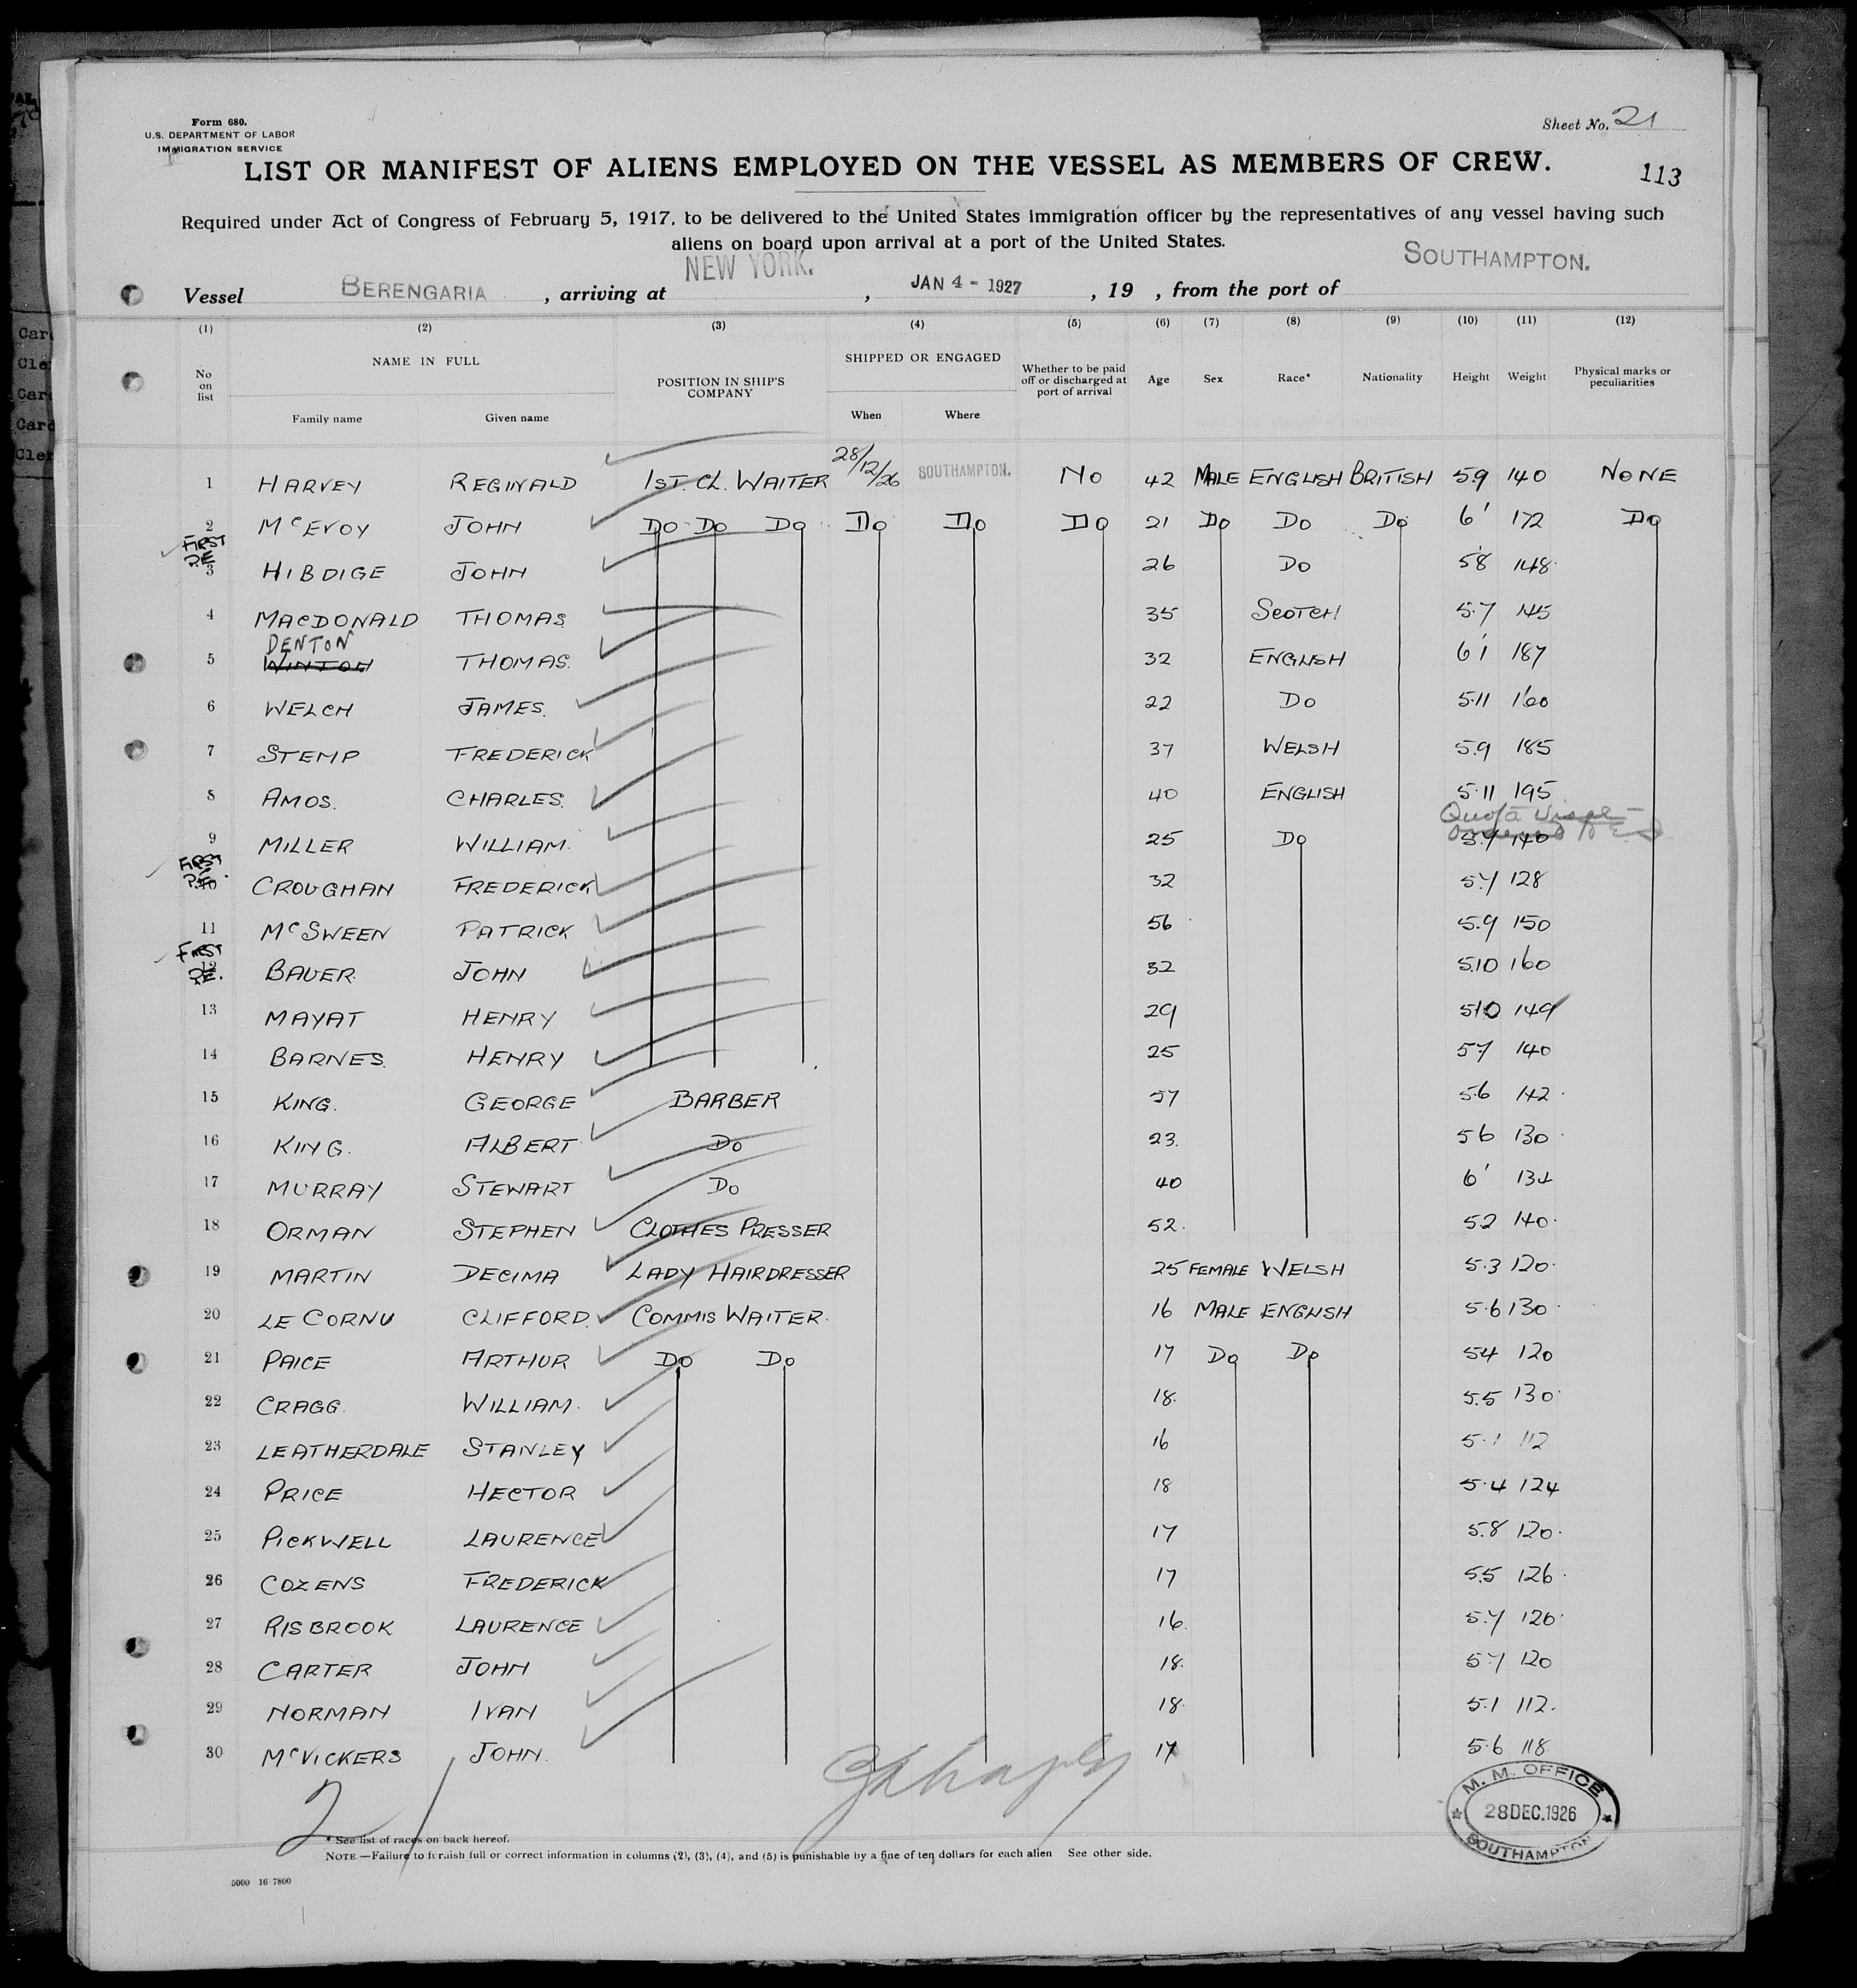 Form 680.
U.S. DEPARTMENT OF LABOR
IMMIGRATION SERVICE
Sheet No. 21
LIST OR MANIFEST OF ALIENS EMPLOYED ON THE VESSEL AS MEMBERS OF CREW.
113
Required under Act of Congress of February 5, 1917, to be delivered to the United States immigration officer by the representatives of any vessel having such
aliens on board upon arrival at a port of the United States.
Vessel BERENGARIA , arriving at NEW YORK. , JAN 4 - 1927 , 19 , from the port of SOUTHAMPTON.
(1) (2) (3) (4) (5) (6) (7) (8) (9) (10) (11) (12)
No on list NAME IN FULL Family name Given name POSITION IN SHIP'S COMPANY SHIPPED OR ENGAGED When Where Whether to be paid off or discharged at port of arrival Age Sex Race* Nationality Height Weight Physical marks or peculiarities
1 HARVEY REGINALD 1ST. CL. WAITER 28/12/26 SOUTHAMPTON. NO 42 MALE ENGLISH BRITISH 5.9 140 NONE
2 McEVOY JOHN DO DO DO DO DO DO 21 DO DO DO 6' 172 DO
FIRST P.E. 3 HIBDIGE JOHN 26 DO 5.8 148
4 MACDONALD THOMAS 35 SCOTCH 5.7 145
DENTON
5 WINTON THOMAS. 32 ENGLISH 6'1 187
6 WELCH JAMES. 22 DO 5.11 160
7 STEMP FREDERICK 37 WELSH 5.9 185
8 AMOS. CHARLES. 40 ENGLISH 5.11 195
Quota
9 MILLER WILLIAM. 25 DO 5.7 140
FIRST P.E. 10 CROUGHAN FREDERICK 32 5.7 128
11 McSWEEN PATRICK 56 5.9 150
FIRST P.E. 12 BAUER JOHN 32 5.10 160
13 MAYAT HENRY 29 5.10 149
14 BARNES. HENRY 25 5.7 140
15 KING. GEORGE BARBER 57 5.6 142
16 KING. ALBERT DO 23. 5.6 130
17 MURRAY STEWART DO 40 6' 134
18 ORMAN STEPHEN CLOTHES PRESSER 52. 5.2 140
19 MARTIN DECIMA LADY HAIRDRESSER 25 FEMALE WELSH 5.3 120
20 LE CORNU CLIFFORD. COMMIS WAITER. 16 MALE ENGLISH 5.6 130
21 PAICE ARTHUR DO DO 17 DO DO 5.4 120
22 CRAGG. WILLIAM. 18. 5.5 130
23 LEATHERDALE STANLEY 16 5.1 112
24 PRICE HECTOR 18 5.4 124
25 PICKWELL LAURENCE 17 5.8 120
26 COZENS FREDERICK 17 5.5 126
27 RISBROOK LAURENCE 16. 5.7 120
28 CARTER JOHN 18. 5.7 120
29 NORMAN IVAN 18. 5.1 112.
30 McVICKERS JOHN. 17 5.6 118
2
M. M. OFFICE
28 DEC. 1926
SOUTHAMPTON
* See list of races on back hereof.
NOTE.—Failure to furnish full or correct information in columns (2), (3), (4), and (5) is punishable by a fine of ten dollars for each alien See other side.
5000 16-7800